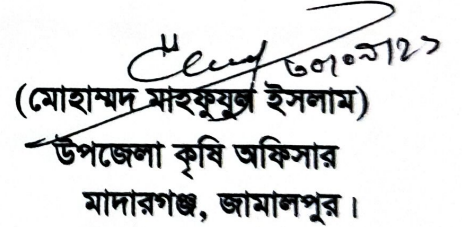 ৩০/০৯/২১
(মোহাম্মদ মাহফুযুল ইসলাম)
উপজেলা কৃষি অফিসার
মাদারগঞ্জ, জামালপুর।